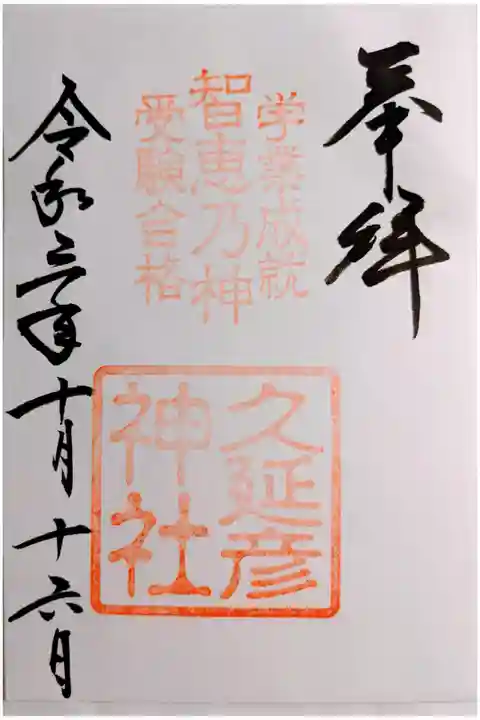 奉拝
学業成就
智恵乃神
受験合格
久延彦
神社
令和三年十月十六月